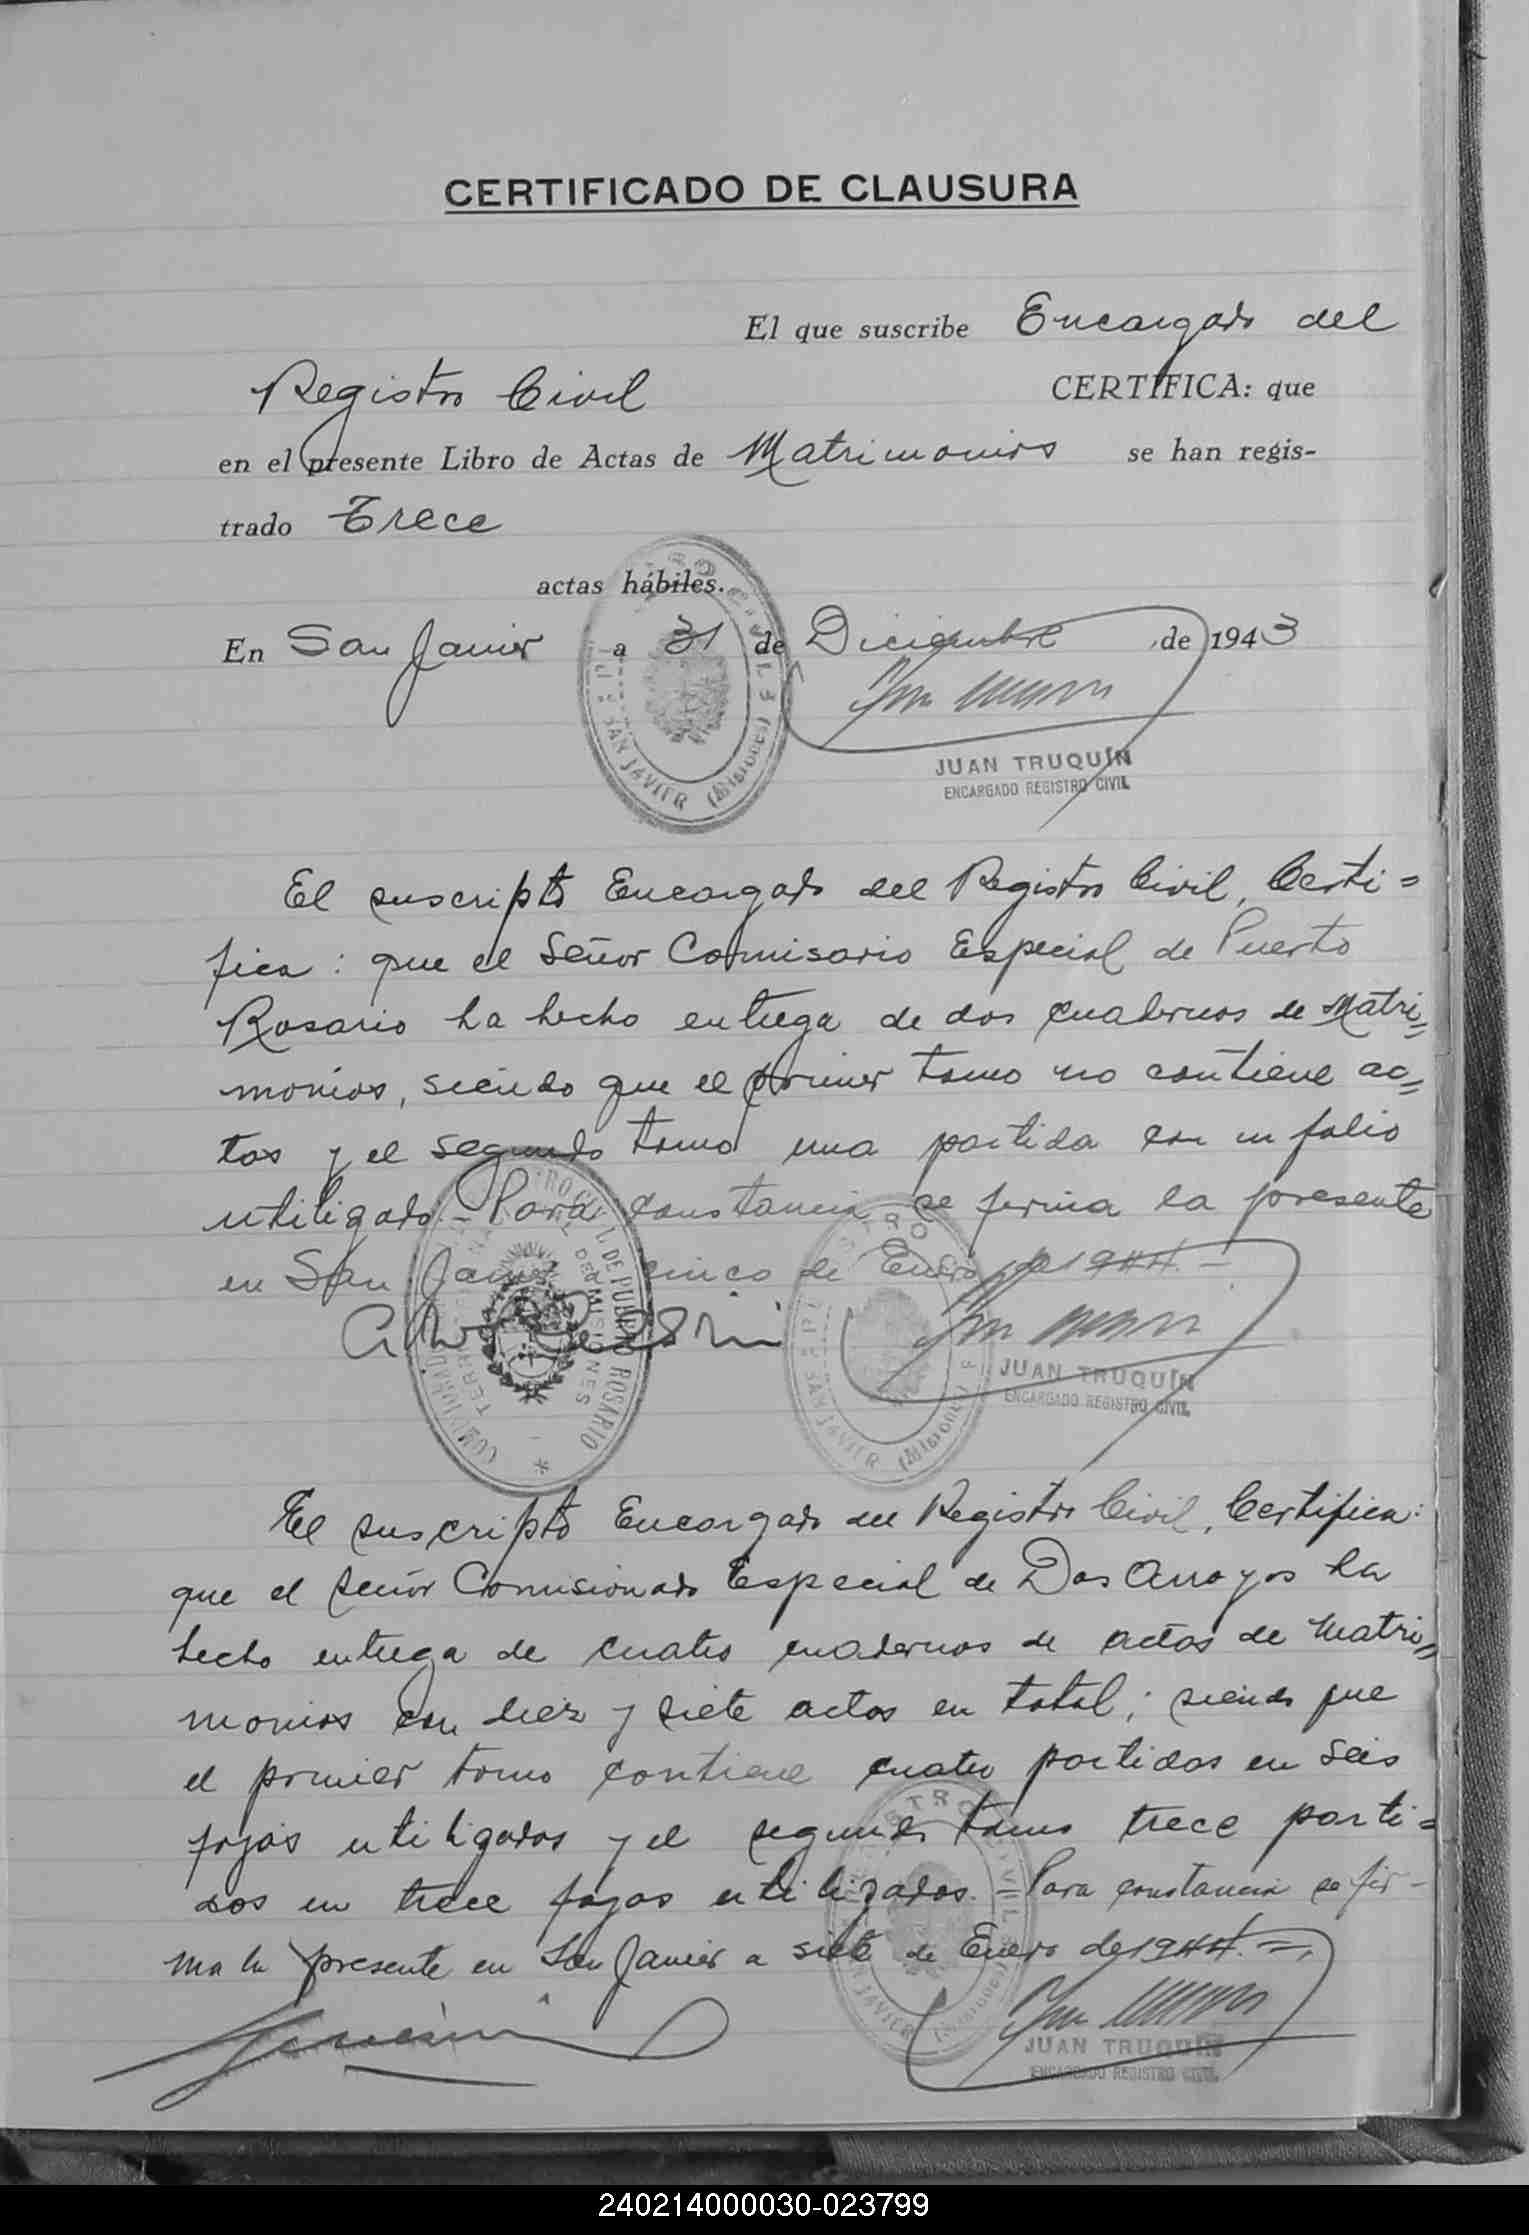 CERTIFICADO DE CLAUSURA
El que suscribe Encargado del
Registro Civil CERTIFICA: que
en el presente Libro de Actas de Matrimonios se han regis-
trado Trece
actas hábiles.
En San Javier a 31 de Diciembre de 1943
SAN JAVIER (Misiones)
JUAN TRUQUÍN
ENCARGADO REGISTRO CIVIL
El suscripto Encargado del Registro Civil, Certi=
fica: que el Señor Comisario Especial de Puerto
Rosario ha hecho entrega de dos cuadernos de Matri=
monios, siendo que el primer tomo no contiene ac=
tas y el segundo tomo una partida con un folio
utilizado.- Para constancia se firma la presente
en San Javier a cinco de Enero de 1944.-
DE PUERTO ROSARIO
DE MISIONES
SAN JAVIER (Misiones)
JUAN TRUQUÍN
ENCARGADO REGISTRO CIVIL
El suscripto Encargado del Registro Civil, Certifica:
que el señor Comisionado Especial de Dos Arroyos ha
hecho entrega de cuatro cuadernos de actas de Matri=
monios con diez y siete actas en total; siendo que
el primer tomo contiene cuatro partidas en seis
fojas utilizadas y el segundo tomo trece parti=
das en trece fojas utilizadas.- Para constancia se fir-
ma la presente en San Javier a siete de Enero de 1944.=
JUAN TRUQUÍN
ENCARGADO REGISTRO CIVIL
240214000030-023799